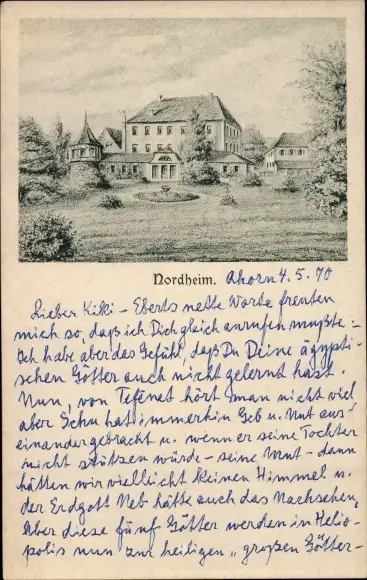 Nordheim. Ahorn 4.5.70
Lieber Kikki - Eberts nette Worte freuten
mich so, daß ich Dich gleich anrufen mußte :-
Ich habe aber das Gefühl, daß Du Deine ägypti-
schen Götter auch nicht gelernt hast.
Nun, von Tefenet hört man nicht viel
aber Schu hat immerhin Geb u. Nut aus-
einandergebracht u. wenn er seine Tochter
nicht stützen würde - seine Nut - dann
hätten wir vielleicht keinen Himmel u.
der Erdgott Neb hätte auch das Nachsehen,
Aber diese fünf Götter werden in Helio-
polis nun zur heiligen „großen Götter-